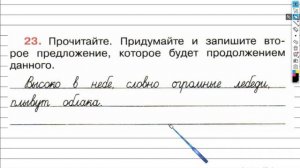 23. Прочитайте. Придумайте и запишите вто-
рое предложение, которое будет продолжением
данного.
Высоко в небе, словно огромные лебеди,
плывут облака.